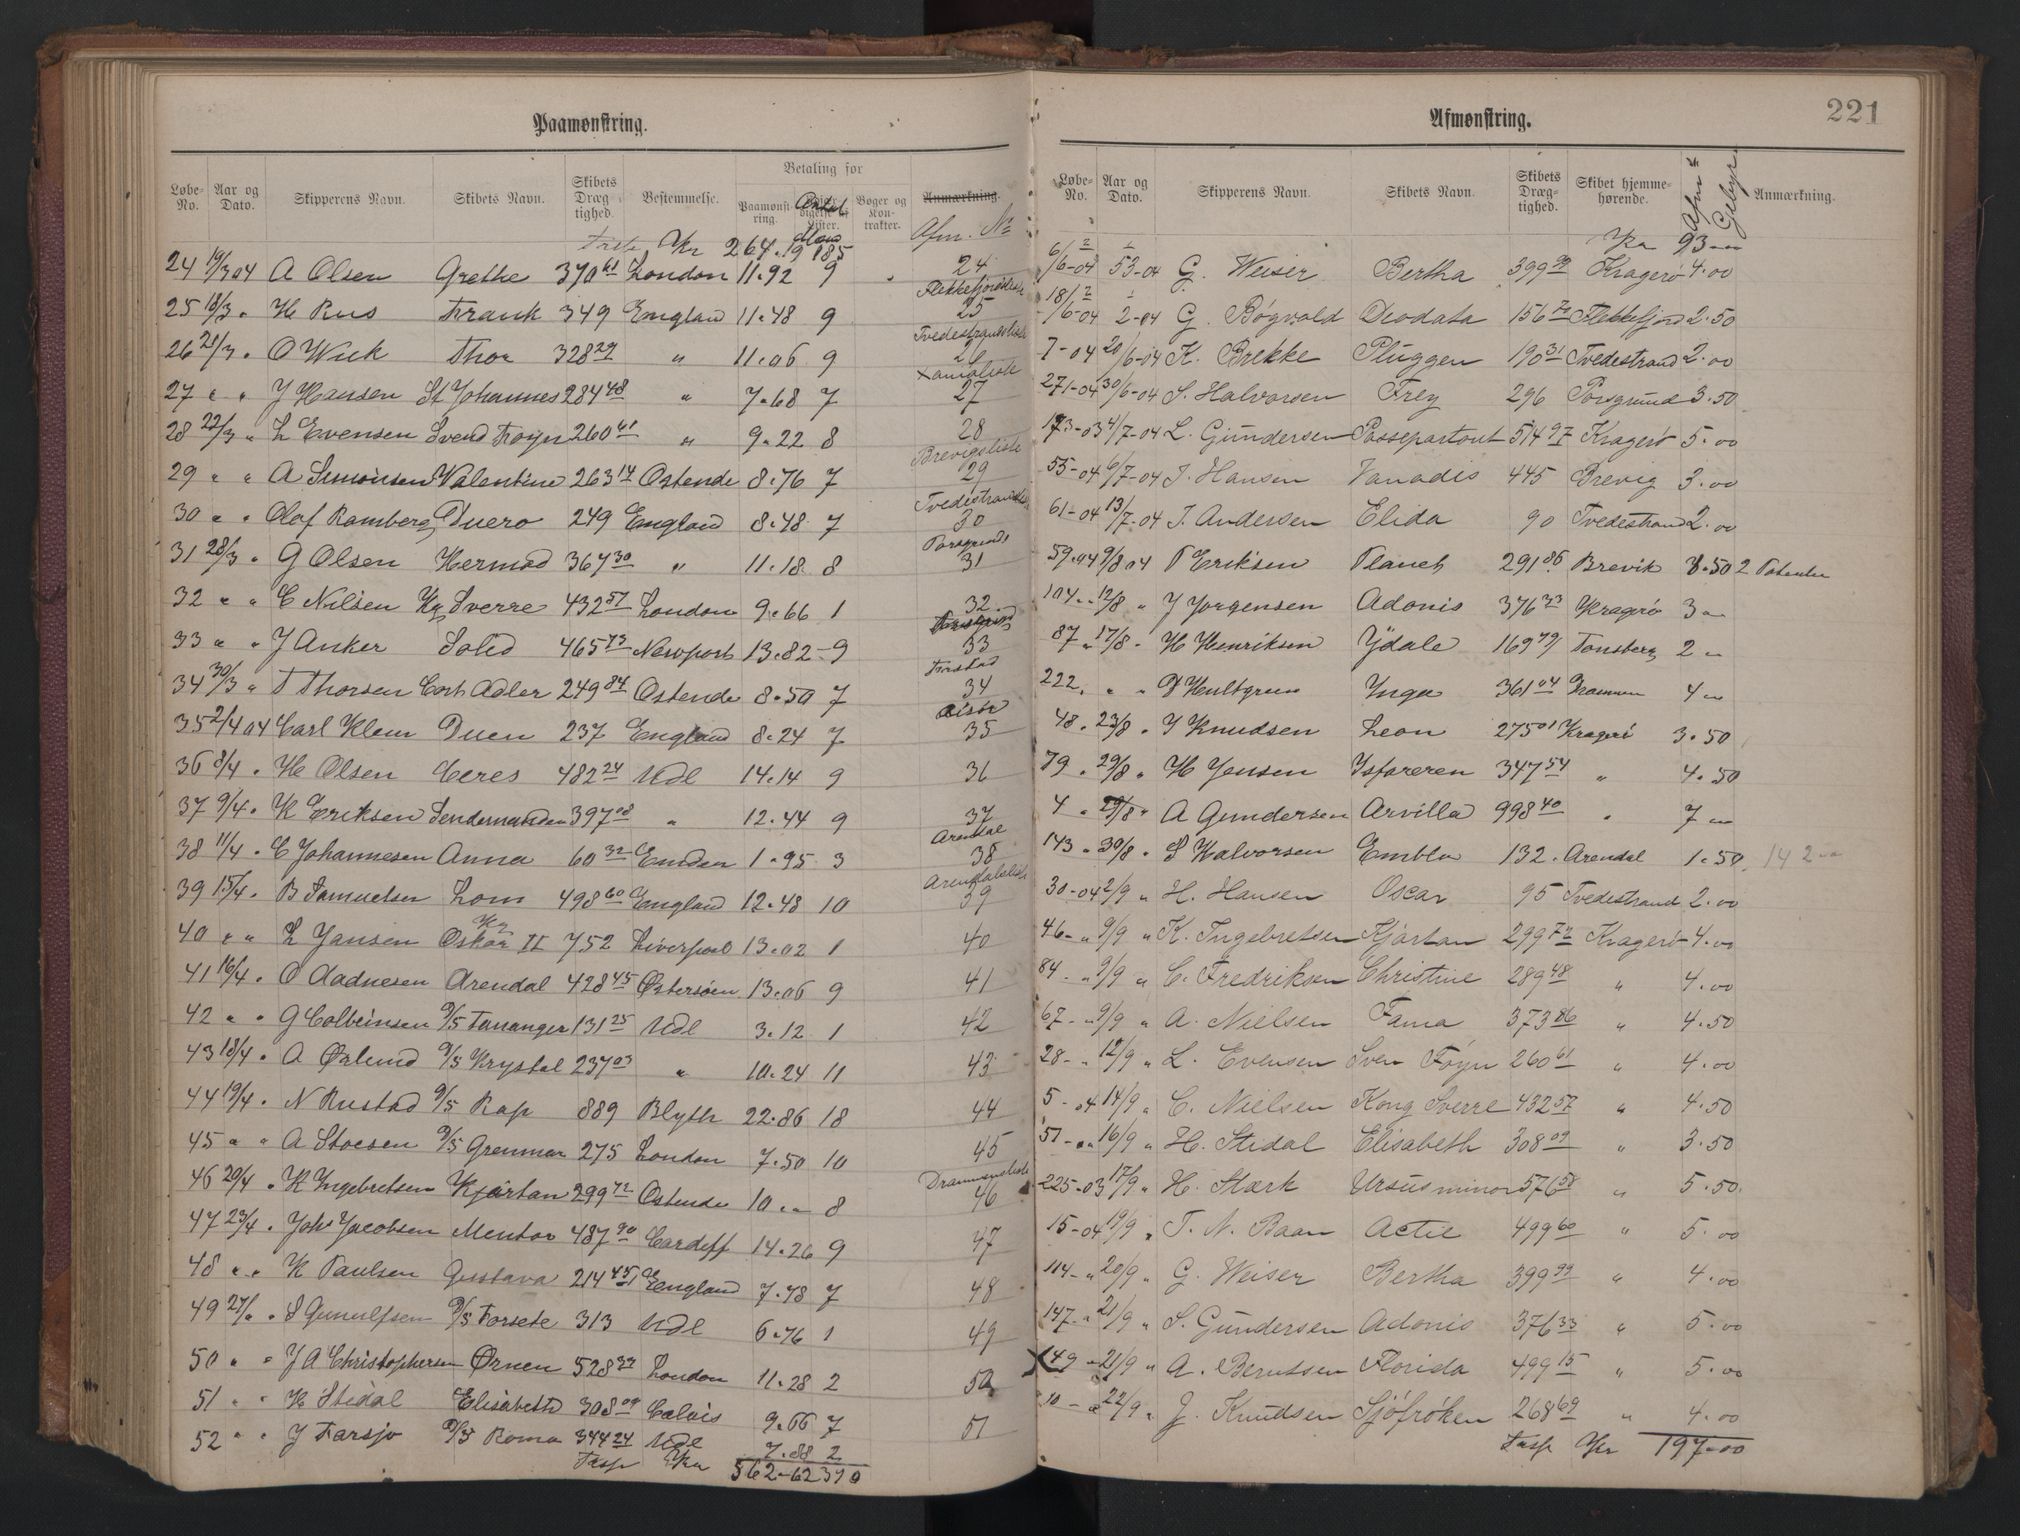 Paamønstring.
Løbe-No. Aar og Dato. Skipperens Navn. Skibets Navn. Skibets Dræg-tighed. Bestemmelse. Betaling for Paamønst-ring. Antal Mans Bøger og Kon-trakter. Anmærkning. Afm. No
Kr 264.19 185
24 19/3 04 A Olsen Grethe 370 61 London 11.92 9 24
Flekkefjordliste
25 18/3 " H Rus Frank 349 England 11.48 9 25
Tvedestrandsliste
26 21/3 " O Wiek Thor 328 29 " 11.06 9
27 " " J Hansen St Johannes 284 48 " 7.68 7 27
28 22/3 " L Evensen Svend Foyn 260 61 " 9.22 8 28
Brevigsliste
29 " " A Simonsen Valentine 263 14 Ostende 8.76 7 29
30 " " Olaf Ramberg Duero 249 England 8.48 7 30
31 28/3 " G Olsen Hermod 367 30 " 11.18 8 31
32 " " C Nilsen Kg Sverre 432 57 London 9.66 1 32
33 " " J Anker Solid 465 73 Newport 13.82 9 33
34 30/3 " T Thorsen Cort Adler 249 84 Ostende 8.50 7 34
35 2/4 04 Carl Klem Duen 237 England 8.24 7 35
36 8/4 " H Olsen Ceres 482 24 Udl 14.14 9 36
37 9/4 " K Eriksen Søndermanden 397 08 " 12.44 9 37
Arendal
38 11/4 " C Johannesen Anna 60 32 Emden 1.95 3 38
Arendalsliste
39 15/4 " B Samuelsen Lom 498 60 England 12.48 10 39
40 " " L Jansen Kg Oskar II 752 Liverpool 13.02 1 40
41 16/4 " O Aadnesen Arendal 428 45 Østersøen 13.06 9 41
42 " " G Colbeinsen D/S Tananger 131 25 Udl 3.12 1 42
43 18/4 " A Ørlund D/S Krystal 237 03 " 10.24 11 43
44 19/4 " N Rustad D/S Rap 889 Blyth 22.86 18 44
45 " " A Stoesen D/S Grenmar 275 London 7.50 10 45
Drammensliste
46 20/4 " K Ingebretsen Kjartan 299 72 Ostende 10 " 8 46
47 23/4 " Johs Jacobsen Mentor 487 90 Cardiff 14.26 9 47
48 " " K Paulsen Gustava 214 45 England 7.48 7 48
49 27/4 " S Gunulfsen D/S Forsete 313 Udl 6.76 1 49
50 " " J A Christophersen Ørnen 528 London 11.28 2 50
51 " " H Stidal Elisabeth 308 09 Calais 9.66 7 51
52 " " J Farsjø D/S Roma 344 24 Udl 7.88 2
Trsp Kr 562-62 390

Afmønstring. 221
Løbe-No. Aar og Dato. Skipperens Navn. Skibets Navn. Skibets Dræg-tighed. Skibet hjemme-hørende. Afm. Gebyr Anmærkning.
Kr 93-"
53-04 G. Weiser Bertha 399 99 Kragerø 4.00
2-04 G. Bøgvald Deodata 156 72 Flekkefjord 2.50
7-04 20/6-04 K. Brekke Pluggen 190 31 Tvedestrand 2.00
271-04 30/6-04 S. Halvorsen Frey 296 Porsgrund 3.50
173-03 4/7-04 L. Gundersen Passepartout 514 97 Kragerø 5.00
55-04 6/7-04 J. Hansen Vanadis 445 Brevig 3.00
61-04 13/7-04 J. Andersen Elida 90 Tvedestrand 2.00
59-04 9/8 04 T Eriksen Planet 291 86 Brevik 3.50 2 Patenter
104 " 12/8 " J Jørgensen Adonis 376 33 Kragerø 3 "
87 " 17/8 " H Henriksen Ydale 169 79 Tønsberg 2 "
222 " " " D Hultgren Inga 361 04 Drammen 4 "
48 " 23/8 " J Knudsen Leon 275 01 Kragerø 3.50
79 " 29/8 " H Jensen Isfareren 347 54 " 4.50
4 " 29/8 " A Gundersen Arvilla 998 40 " 7 "
143 " 30/8 " S Halvorsen Embla 132 " Arendal 1.50 142 "
30-04 2/9 " H. Hansen Oscar 95 Tvedestrand 2.00
46-" 9/9 " K. Ingebretsen Kjartan 299 72 Kragerø 4.00
84-" 9/9 " C. Fredriksen Christine 289 48 " 4.00
67-" 9/9 " A. Nielsen Fama 373 86 " 4.50
28-" 12/9 " L. Evensen Sven Föyn 260 61 " 4.00
5-04 14/9 " C. Nielsen Kong Sverre 432 57 " 4.50
51-" 16/9 " H. Stidal Elisabeth 308 09 " 3.50
225-03 17/9 " H. Stark Ursus minor 576 58 " 5.50
15-04 19/9 " T. N. Baan Actie 499 60 " 5.00
114-" 20/9 " G. Weiser Bertha 399 99 " 4.00
147-" 21/9 " S. Gundersen Adonis 376 33 " 5.00
X 49-" 21/9 " A. Berntsen Florida 499 15 " 5.00
10-" 22/9 " J. Knudsen Sjöfröken 268 69 " 4.00
Trsp Kr 197-00